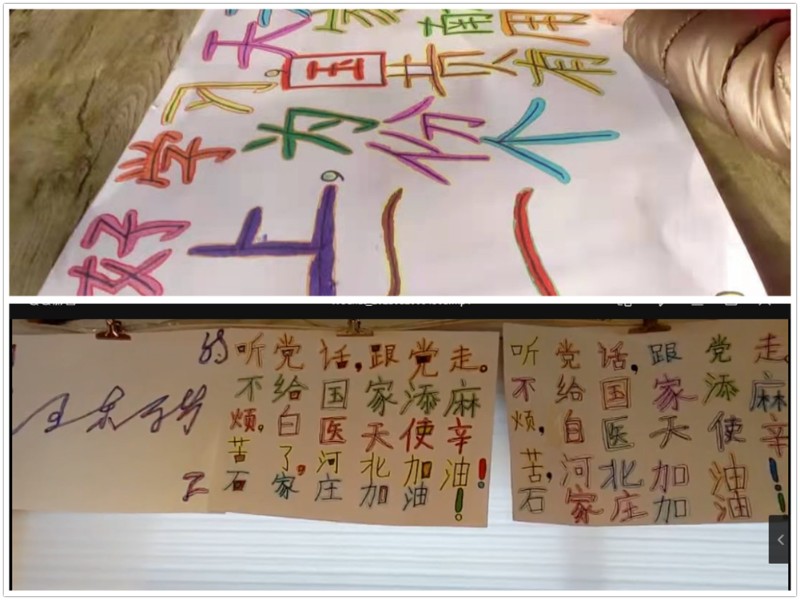 好学习,天
上,为国家
一份贡
一个有用
的
听党话,跟党走。
不给国家添麻
烦,白医天使辛
苦了。河北加油!
石家庄加油!
听党话,跟党走。
不给国家添麻
烦,白医天使辛
苦,河北加油!
石家庄加油!